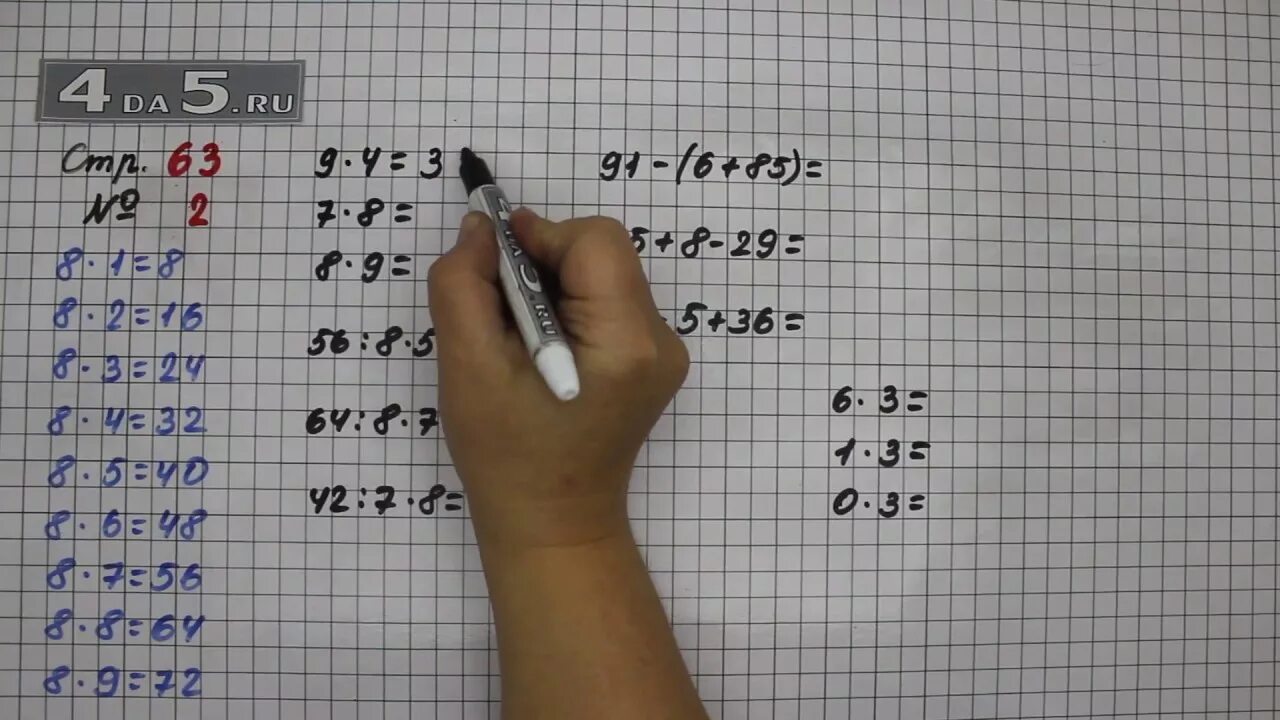 4 DA 5.RU
Стр. 63
№ 2
8 · 1 = 8
8 · 2 = 16
8 · 3 = 24
8 · 4 = 32
8 · 5 = 40
8 · 6 = 48
8 · 7 = 56
8 · 8 = 64
8 · 9 = 72
9 · 4 = 3
7 · 8 =
8 · 9 =
56 : 8 · 5
64 : 8 · 7
42 : 7 · 8 =
91 - (6 + 85) =
5 + 8 - 29 =
5 + 36 =
6 · 3 =
1 · 3 =
0 · 3 =
4 DA 5.RU